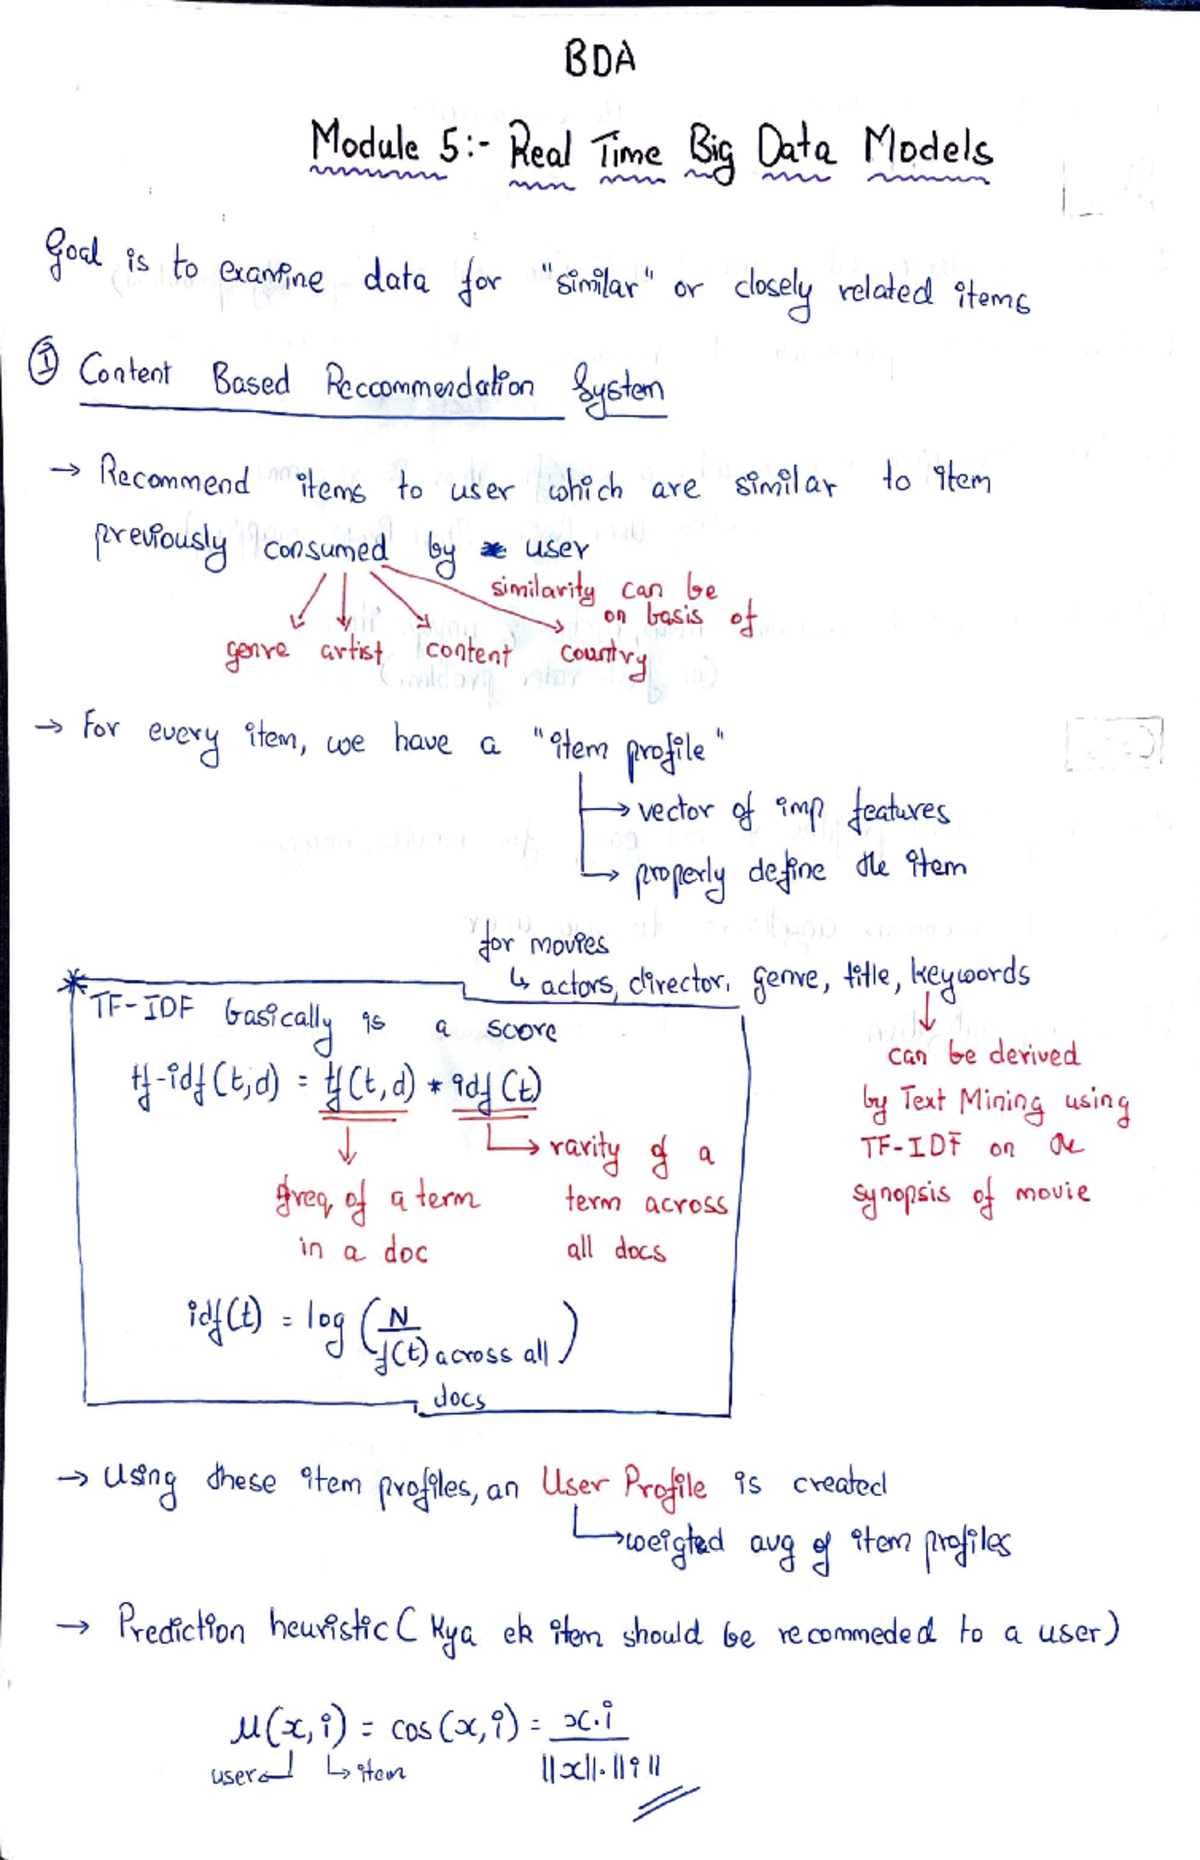 BDA
Module 5:- Real Time Big Data Models
Goal is to examine data for "similar" or closely related items
① Content Based Reccommendation System
→ Recommend items to user which are similar to item
previously consumed by user
similarity can be
on basis of
genre artist content country
→ For every item, we have a "item profile"
→ vector of imp features
→ properly define the item
for movies
↳ actors, director, genre, title, keywords
can be derived
by Text Mining using
TF-IDF on the
synopsis of movie
* TF-IDF basically is a score
tf-idf(t,d) = tf(t,d) * idf(t)
→ rarity of a
term across
all docs
freq. of a term
in a doc
idf(t) = log (N / f(t) across all
docs)
→ Using these item profiles, an User Profile is created
→ weigted avg of item profiles
→ Prediction heuristic ( Kya ek item should be recommeded to a user)
μ(x, i) = cos(x, i) = x.i / ||x||.||i||
user ↳ item